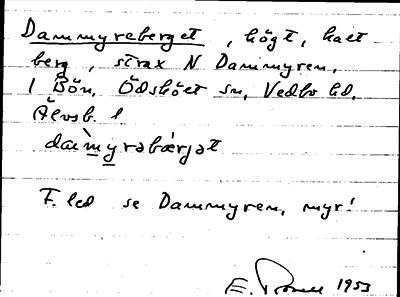 Dammyreberget, högt, kalt
berg, strax N Dammyren,
1 Bön, Ödsköet sn, Vedbo hd,
Älvsb. l
dam̀myrəbærjət
F. led se Dammyren, myr!
E. 1953